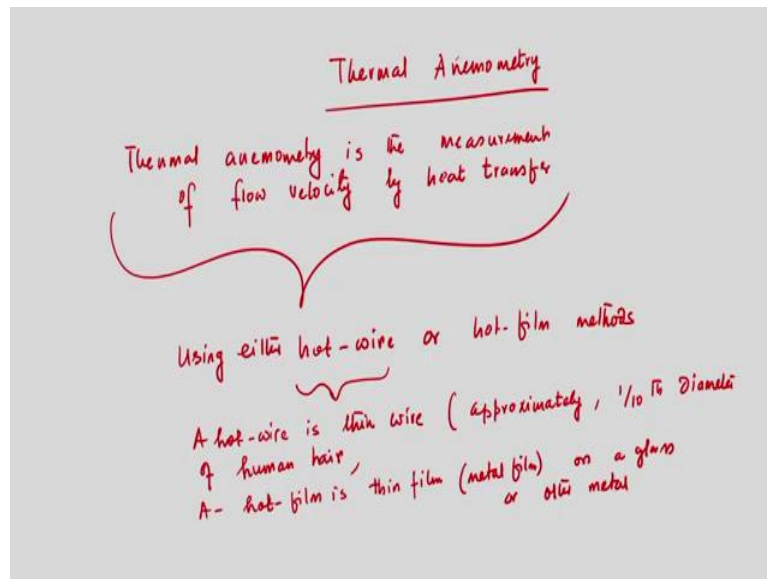 Thermal Anemometry
Thermal anemometry is the measurement
of flow velocity by heat transfer
Using either hot-wire or hot-film methods
A hot-wire is thin wire ( approximately, 1/10 th Diameter
of human hair,
A- hot-film is thin film (metal film) on a glass
or other metal